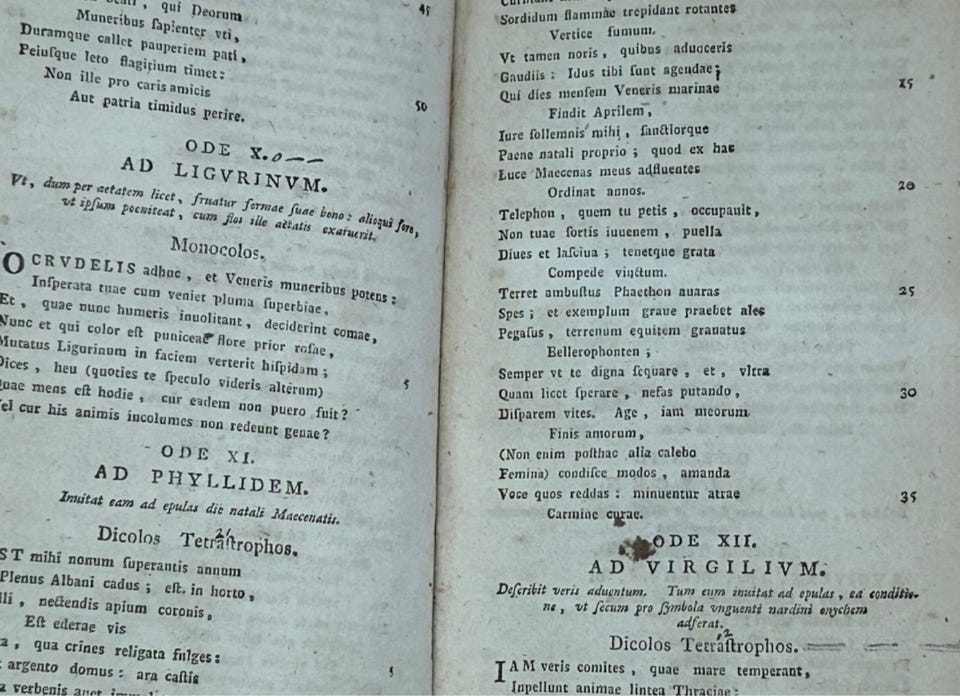 qui Deorum 45
Muneribus ſapienter vti,
Duramque callet pauperiem pati,
Peiuſque leto flagitium timet:
Non ille pro caris amicis
Aut patria timidus perire. 50
ODE X.
AD LIGVRINVM.
Vt, dum per aetatem licet, fruatur formae ſuae bono: alioqui fore,
vt ipſum poeniteat, cum flos ille aetatis exaruerit.
Monocolos.
O CRVDELIS adhuc, et Veneris muneribus potens:
Inſperata tuae cum veniet pluma ſuperbiae,
Et, quae nunc humeris inuolitant, deciderint comae,
Nunc et qui color eſt puniceae flore prior roſae,
Mutatus Ligurinum in faciem verterit hiſpidam; 5
Dices, heu (quoties te ſpeculo videris alterum)
Quae mens eſt hodie, cur eadem non puero fuit?
Vel cur his animis incolumes non redeunt genae?
ODE XI.
AD PHYLLIDEM.
Inuitat eam ad epulas die natali Maecenatis.
Dicolos Tetraſtrophos.
EST mihi nonum ſuperantis annum
Plenus Albani cadus; eſt in horto,
nectendis apium coronis,
Eſt ederae vis
qua crines religata fulges:
argento domus: ara caſtis 5
verbenis auet
Sordidum flammae trepidant rotantes
Vertice fumum.
Vt tamen noris, quibus aduoceris
Gaudiis: Idus tibi ſunt agendae;
Qui dies menſem Veneris marinae 15
Findit Aprilem,
Iure ſollemnis mihi, ſanctiorque
Paene natali proprio; quod ex hac
Luce Maecenas meus adfluentes
Ordinat annos. 20
Telephon, quem tu petis, occupauit,
Non tuae ſortis iuuenem, puella
Diues et laſciua; tenetque grata
Compede vinctum.
Terret ambuſtus Phaethon auaras 25
Spes; et exemplum graue praebet ales
Pegaſus, terrenum equitem grauatus
Bellerophonten;
Semper vt te digna ſequare, et, vltra
Quam licet ſperare, nefas putando, 30
Diſparem vites. Age, iam meorum
Finis amorum,
(Non enim poſthac alia calebo
Femina) condiſce modos, amanda
Voce quos reddas: minuentur atrae 35
Carmine curae.
ODE XII.
AD VIRGILIVM.
Deſcribit veris aduentum. Tum eum inuitat ad epulas, ea conditio-
ne, vt ſecum pro ſymbola vnguenti nardini onychem
adferat.
Dicolos Tetraſtrophos.
IAM veris comites, quae mare temperant,
Inpellunt animae lintea Thraciae: